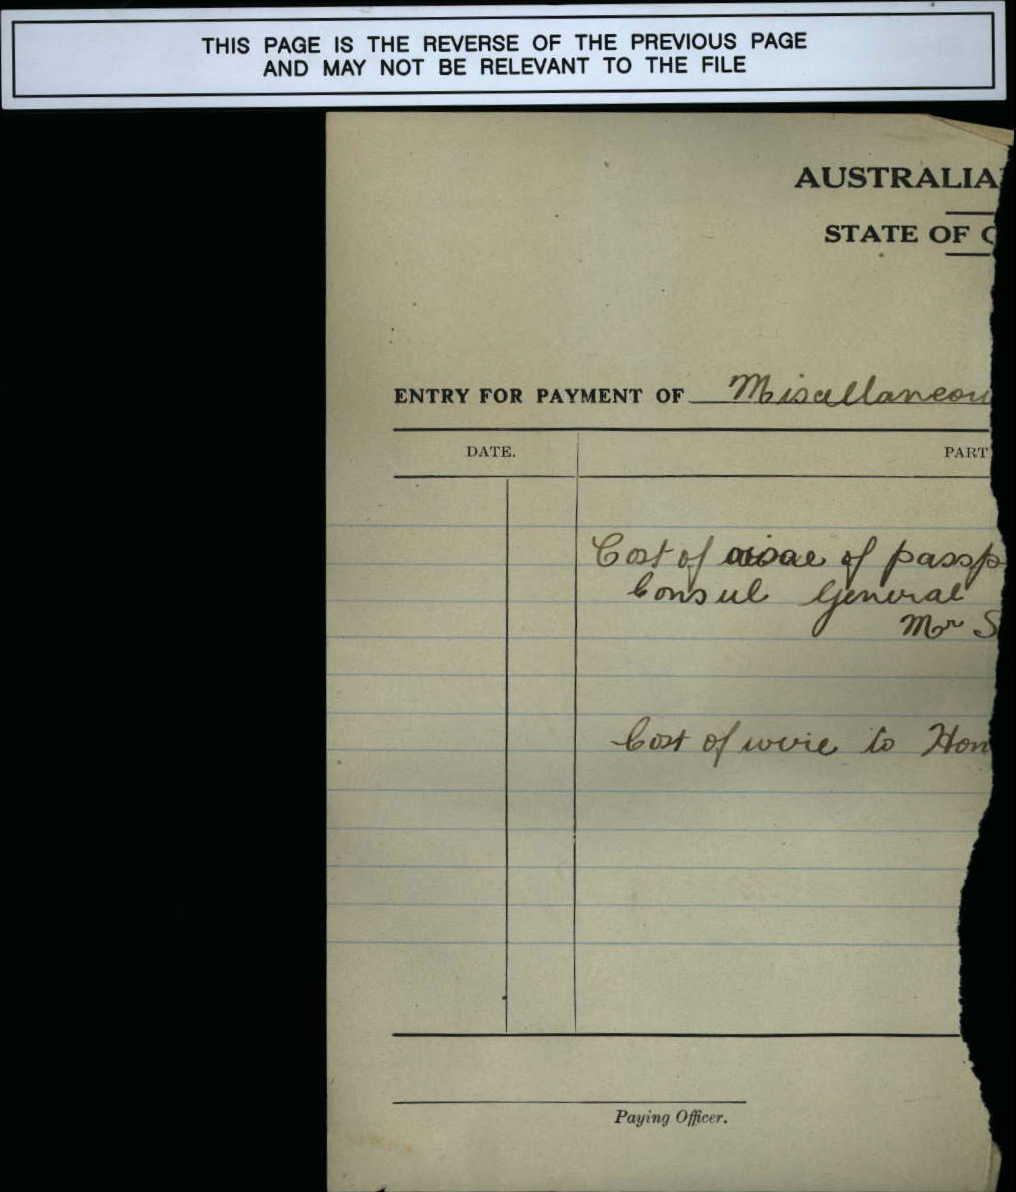 THIS PAGE IS THE REVERSE OF THE PREVIOUS PAGE
AND MAY NOT BE RELEVANT TO THE FILE
AUSTRALIA
STATE OF
ENTRY FOR PAYMENT OF Miscellaneou
DATE. PART
Cost of of passp
Consul General
Mr S
Cost of wire to Hon
Paying Officer.